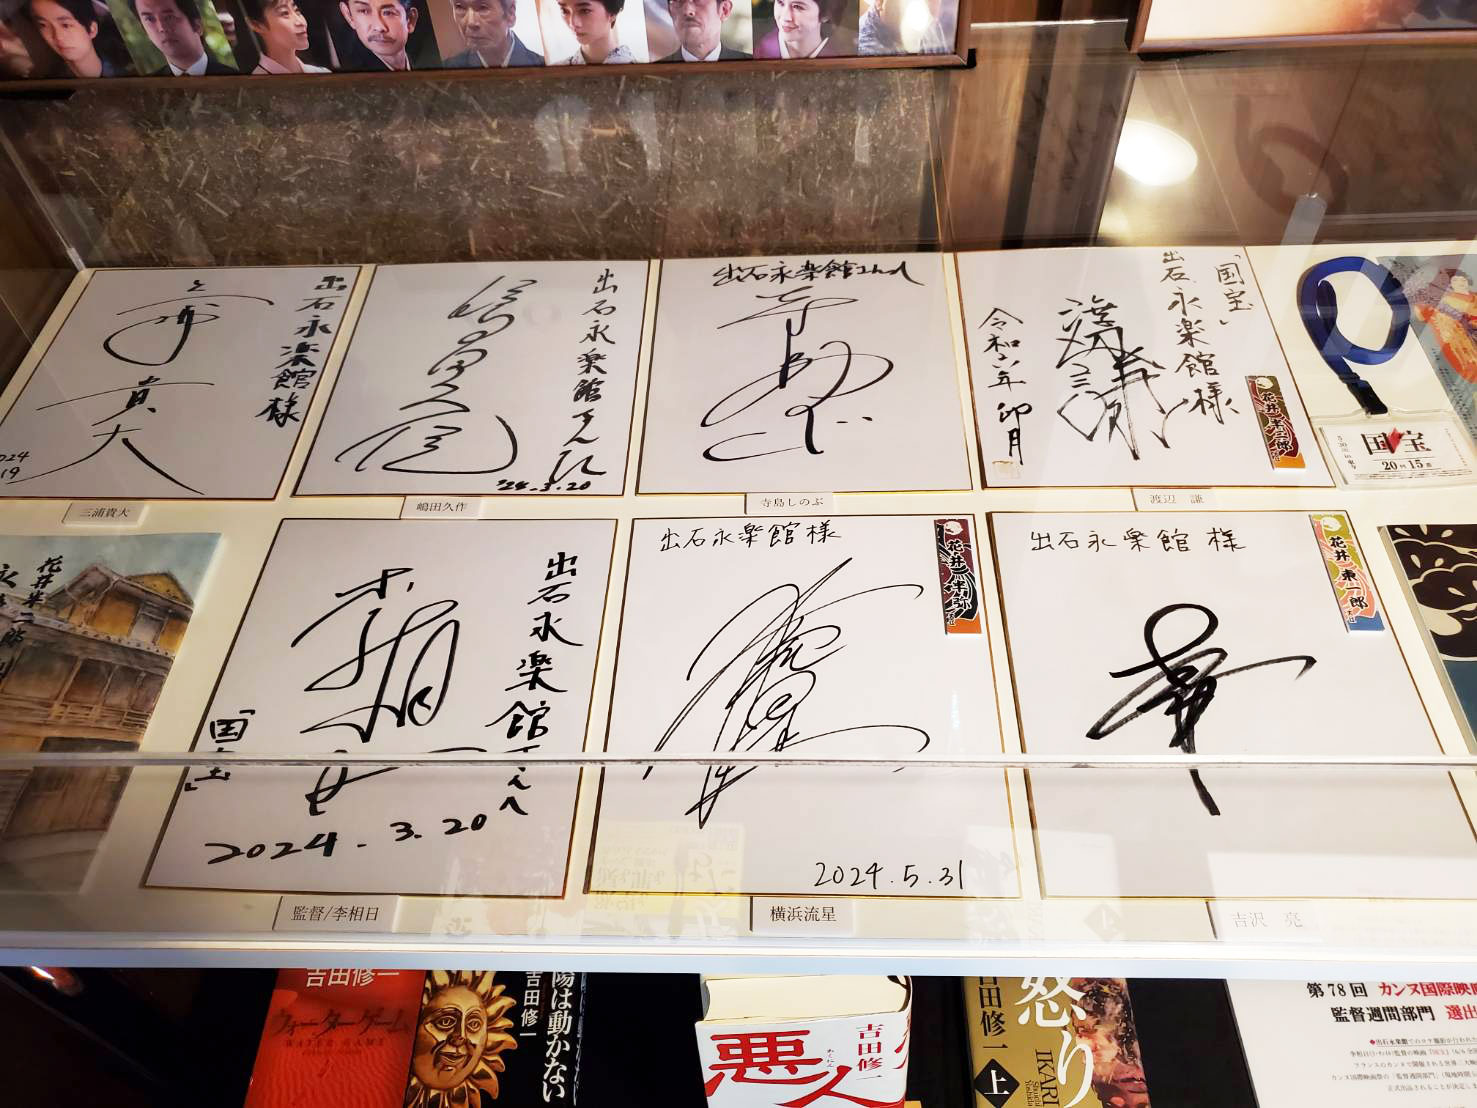 出石永楽館様
三浦貴大
出石永楽館さん江
'24.3.20
嶋田久作
出石永楽館さん江
寺島しのぶ
「国宝」
出石永楽館様
渡辺謙
令和六年 卯月
花井半二郎
渡辺 謙
国宝
花井半二郎
出石永楽館さんへ
「国宝」
2024.3.20
監督/李相日
出石永楽館様
花井半弥
2024.5.31
横浜流星
出石永楽館 様
花井東一郎
吉沢 亮
吉田修一
ウォーターゲーム
WATER GAME
陽は動かない
吉田修一
悪人
あくにん
吉田修一
怒り
IKARI
吉田修一
上
第78回 カンヌ国際映
監督週間部門 選出